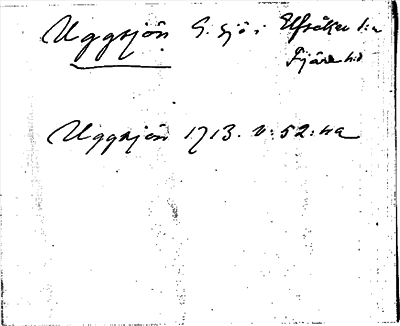 Uggsjön G. sjö i Elfsåker s:n
Fjäre hd
Uggsjön 1713. v: 52: na